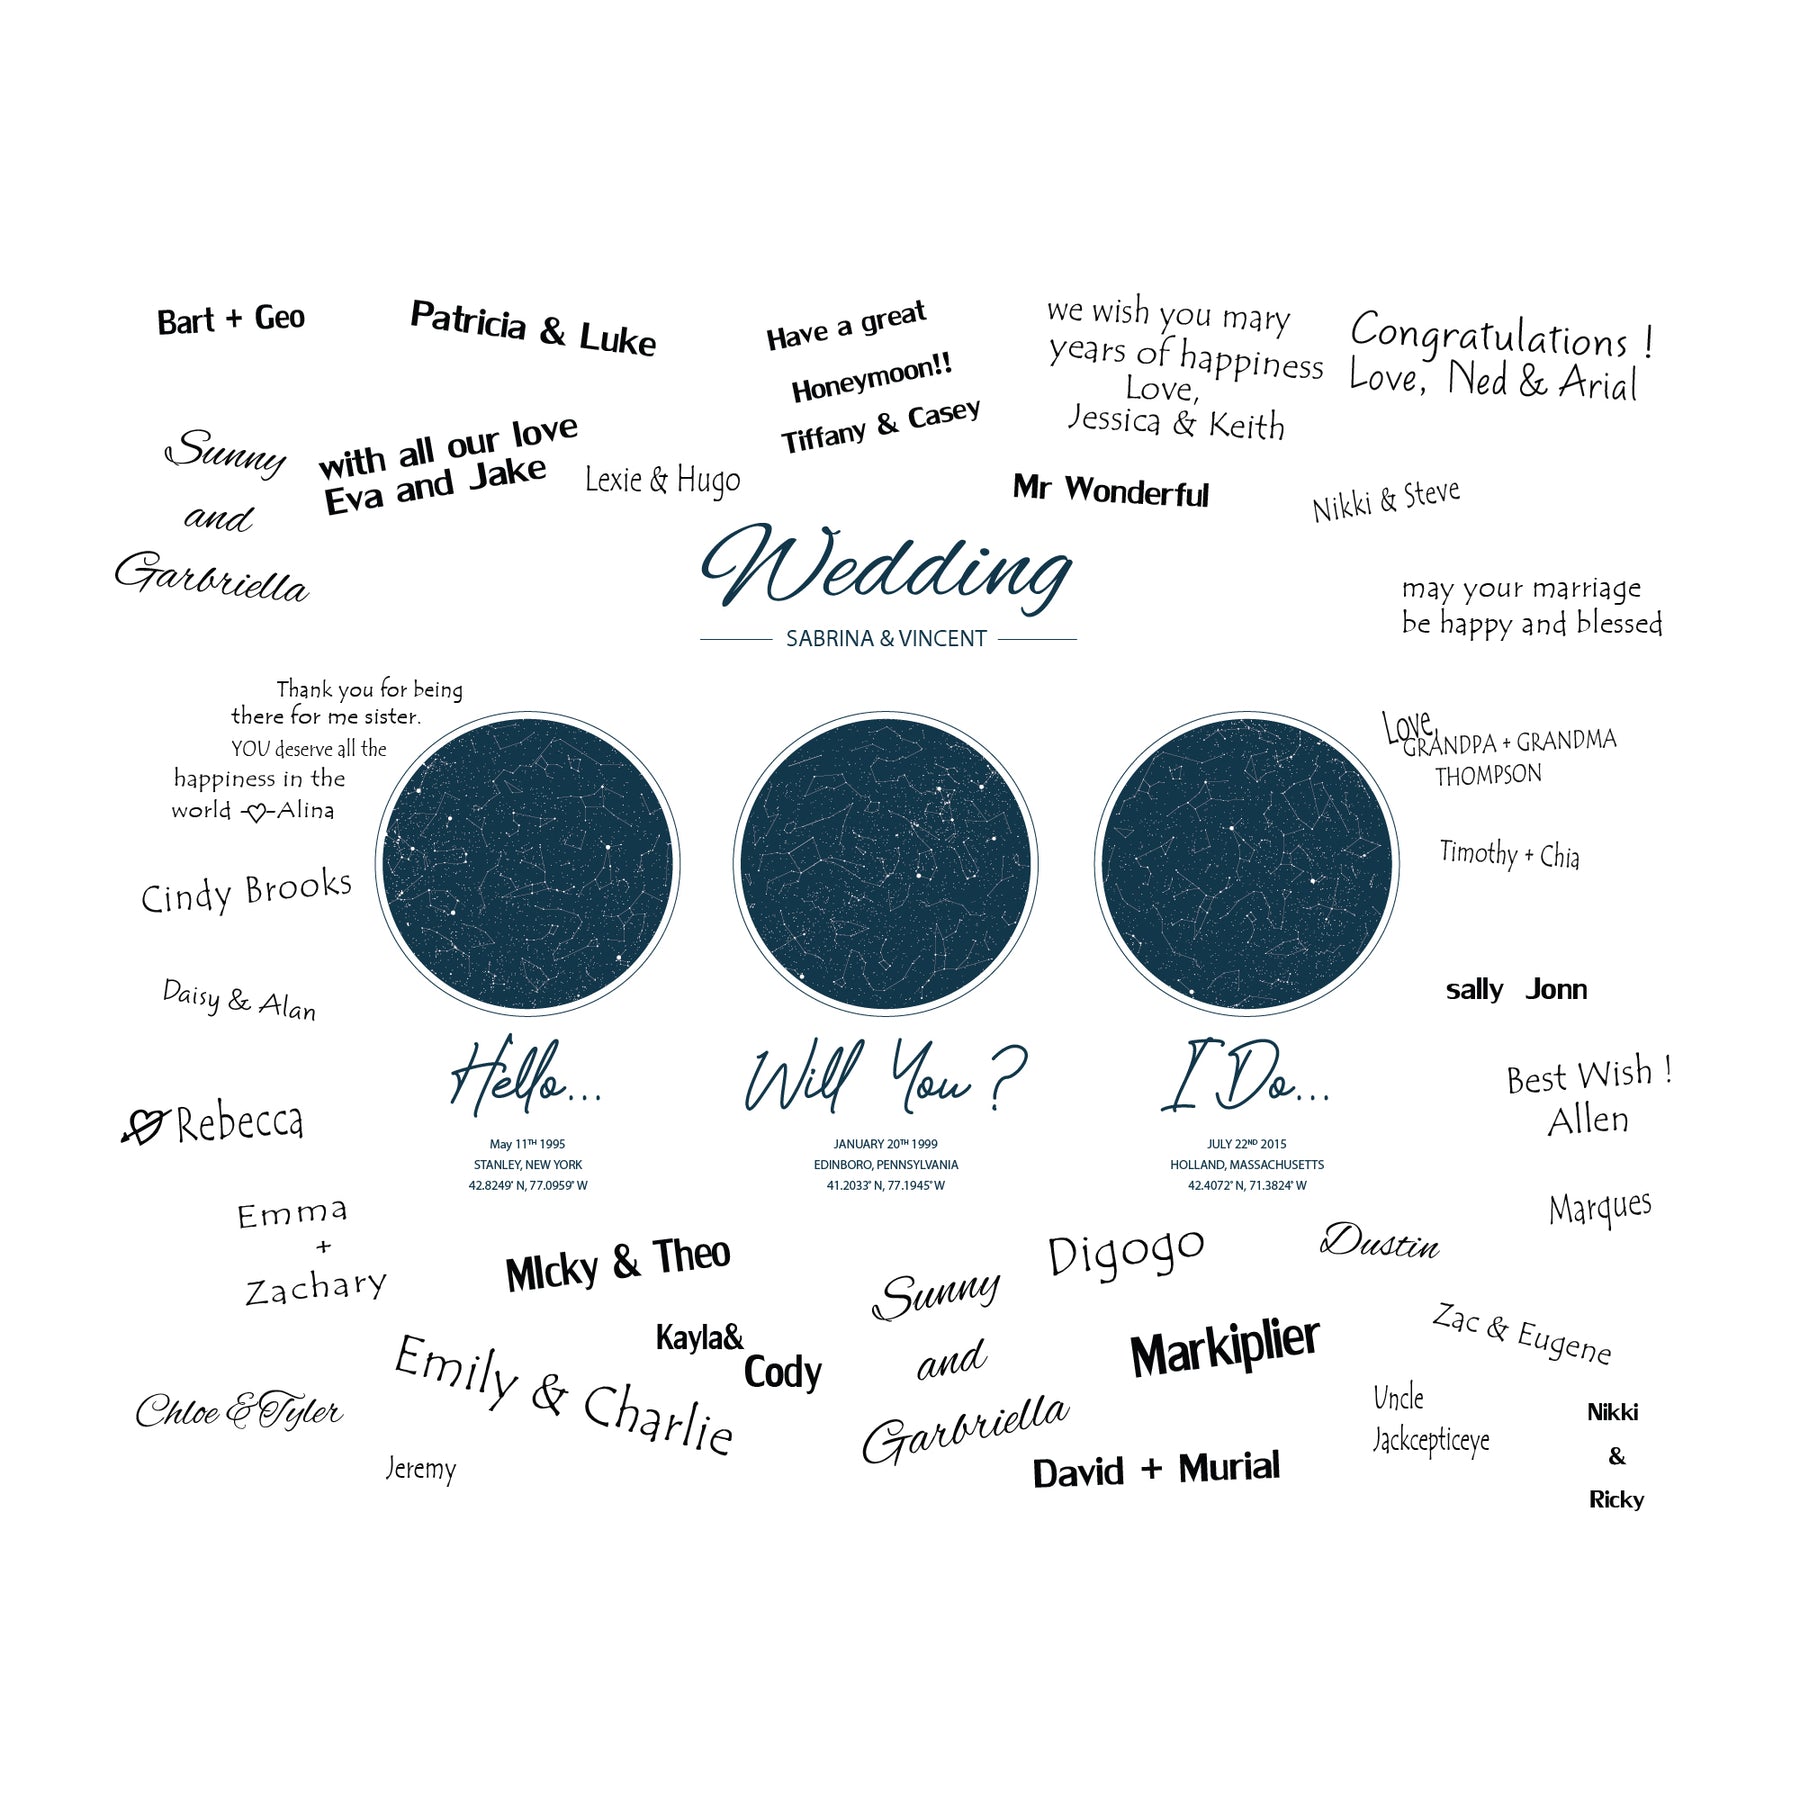 Bart + Geo
Patricia & Luke
Have a great
Honeymoon!!
Tiffany & Casey
we wish you mary
years of happiness
Love,
Jessica & Keith
Congratulations !
Love, Ned & Arial
Sunny
and
Garbriella
with all our love
Eva and Jake
Lexie & Hugo
Mr Wonderful
Nikki & Steve
Wedding
SABRINA & VINCENT
may your marriage
be happy and blessed
Thank you for being
there for me sister.
YOU deserve all the
happiness in the
world -♡-Alina
Love,
GRANDPA + GRANDMA
THOMPSON
Cindy Brooks
Timothy + Chia
Daisy & Alan
sally Jonn
Rebecca
Hello...
May 11TH 1995
STANLEY, NEW YORK
42.8249° N, 77.0959° W
Will You ?
JANUARY 20TH 1999
EDINBORO, PENNSYLVANIA
41.2033° N, 77.1945° W
I Do...
JULY 22ND 2015
HOLLAND, MASSACHUSETTS
42.4072° N, 71.3824° W
Best Wish !
Allen
Marques
Emma
+
Zachary
MIcky & Theo
Digogo
Dustin
Sunny
and
Garbriella
Kayla&
Cody
Markiplier
Zac & Eugene
Emily & Charlie
Chloe & Tyler
Jeremy
David + Murial
Uncle
Jackcepticeye
Nikki
&
Ricky